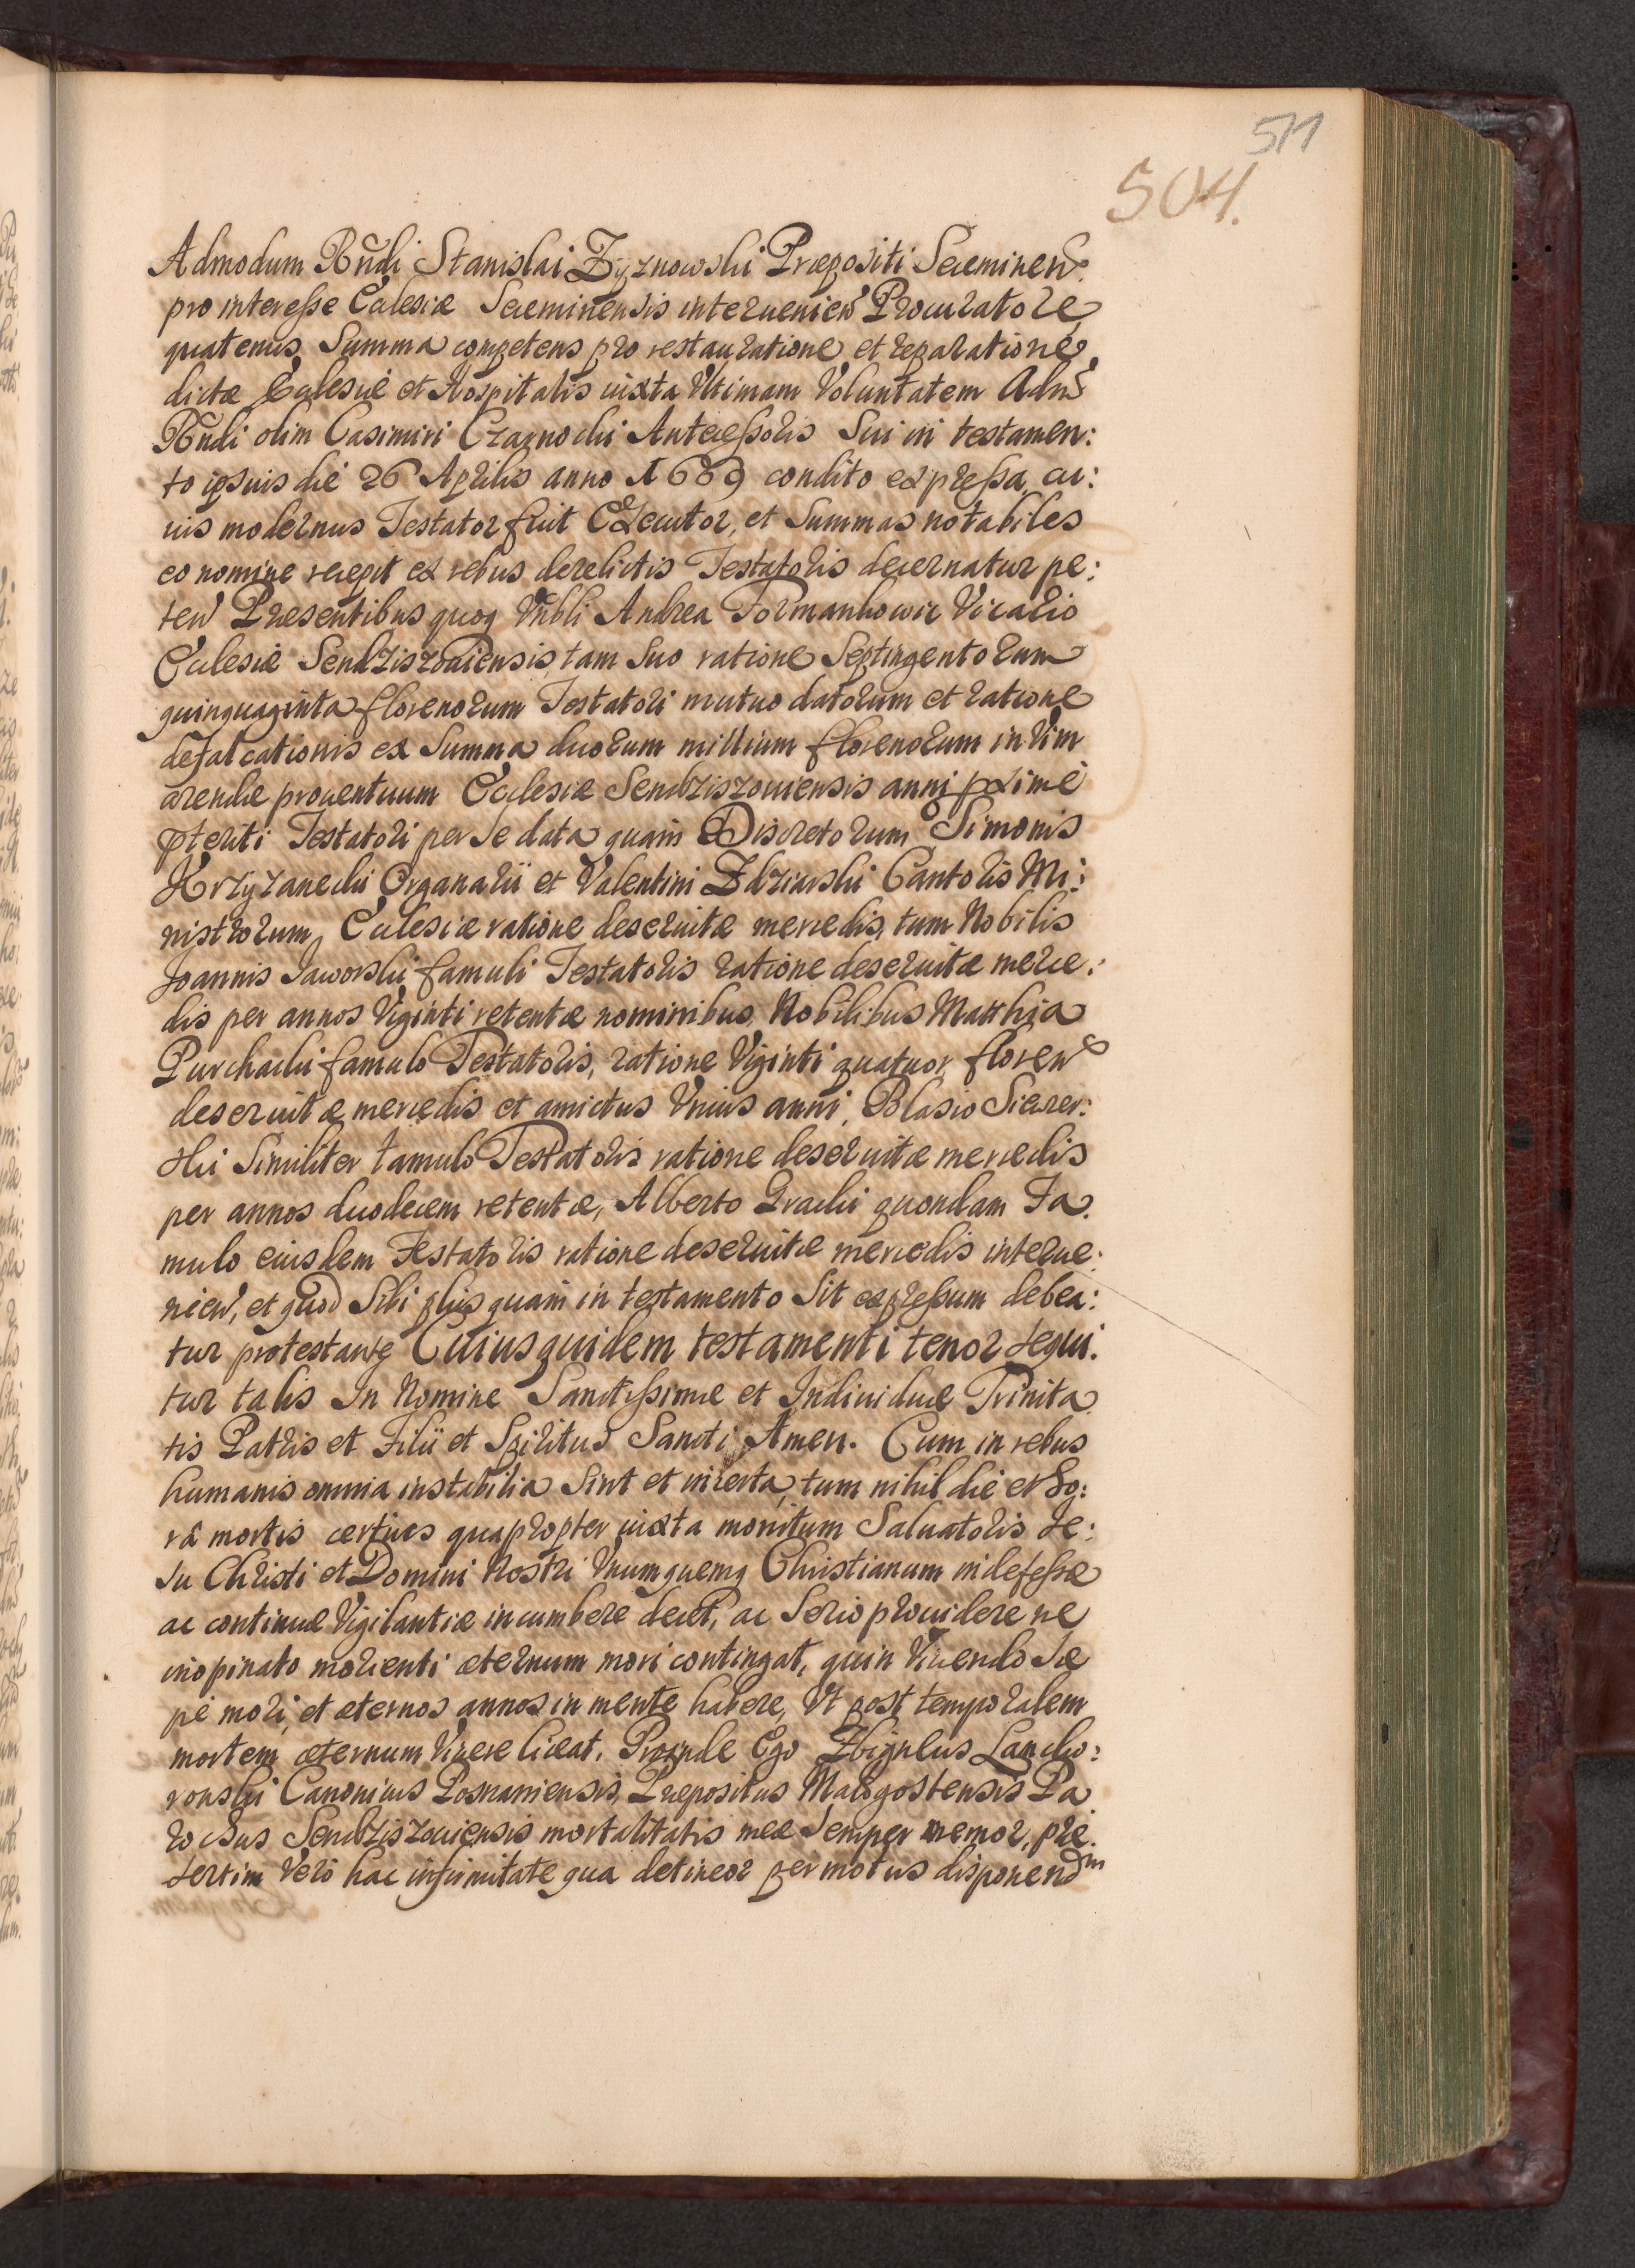 511
504.
Admodum Rñdi Stanislai Zyznowski Præpositi Secemineñ.
pro interesse Ecclesiæ Seceminensis interuenieñ Procuratore
quatenus Summa competens pro restauratione et reparatione
dictæ Ecclesiæ et Hospitalis iuxta Vltimam Voluntatem Adm̃
Rñdi olim Casimiri Czarnocki Antecessoris Sui in testamen:
to ipsius die 26 Aprilis anno 1669 condito expressa, cu:
ius modernus Testator fuit Executor, et Summas notabiles
eo nomine recepit ex rebus derelictis Testatoris decernatur pe:
teñ Præsentibus quoq Vñbli Andrea Formankowic Vicario
Ecclesiæ Sendziszouiensis, tam Suo ratione Septingentorum
quinquaginta florenorum Testatori mutuo datorum et ratione
defalcationis ex Summa duorum millium florenorum in Vim
arendæ prouentuum Ecclesiæ Sendziszouiensis anni pximè
pteriti Testatori per Se data quam Discretorum Simonis
Krzyzanecki Organarii et Valentini Zdziarski Cantoris Mi:
nistrorum Ecclesiæ ratione deseruitæ mercedis, tum Nobilis
Joannis Jaworski famuli Testatoris ratione deseruitæ merce:
dis per annos Viginti retentæ nominibus, Nobilibus Matthia
Purchacki famulo Testatoris, ratione Viginti quatuor floreñ
deseruitæ mercedis et amictus Vnius anni, Blasio
Similiter famulo Testatoris ratione deseruitæ mercedis
per annos duodecem retentæ, Alberto Gracki quondam Fa:
mulo eiusdem Testatoris ratione deseruitæ mercedis interue:
nieñ, et quod Sibi plus quam in testamento Sit expressum debea:
tur protestante Cuius quidem testamenti tenor sequi:
tur talis In Nomine Sanctissimæ et Indiuiduæ Trinita
tis Patris et Filii et Spiritus Sancti Amen. Cum in rebus
humanis omnia instabilia Sint et incerta, tum nihil die et ho:
râ mortis certius quapropter iuxta monitum Saluatoris Je:
su Christi et Domini Nostri Vnumquemq Christianum indefessæ
ac continuæ Vigilantiæ incumbere decet, ac Serio prouidere ne
inopinato morienti æternum mori contingat, quin Viuendo Sæ
pè mori, et æternos annos in mente habere, Vt post temporalem
mortem æternum Viuere liceat. Proinde Ego Zbigneus Lancko:
ronski Canonicus Posnaniensis, Præpositus Malogostensis Pa
rochus Sendziszouiensis mortalitatis meæ Semper memor, præ:
sertim Vero hac infirmitate qua detineor permotus disponendm